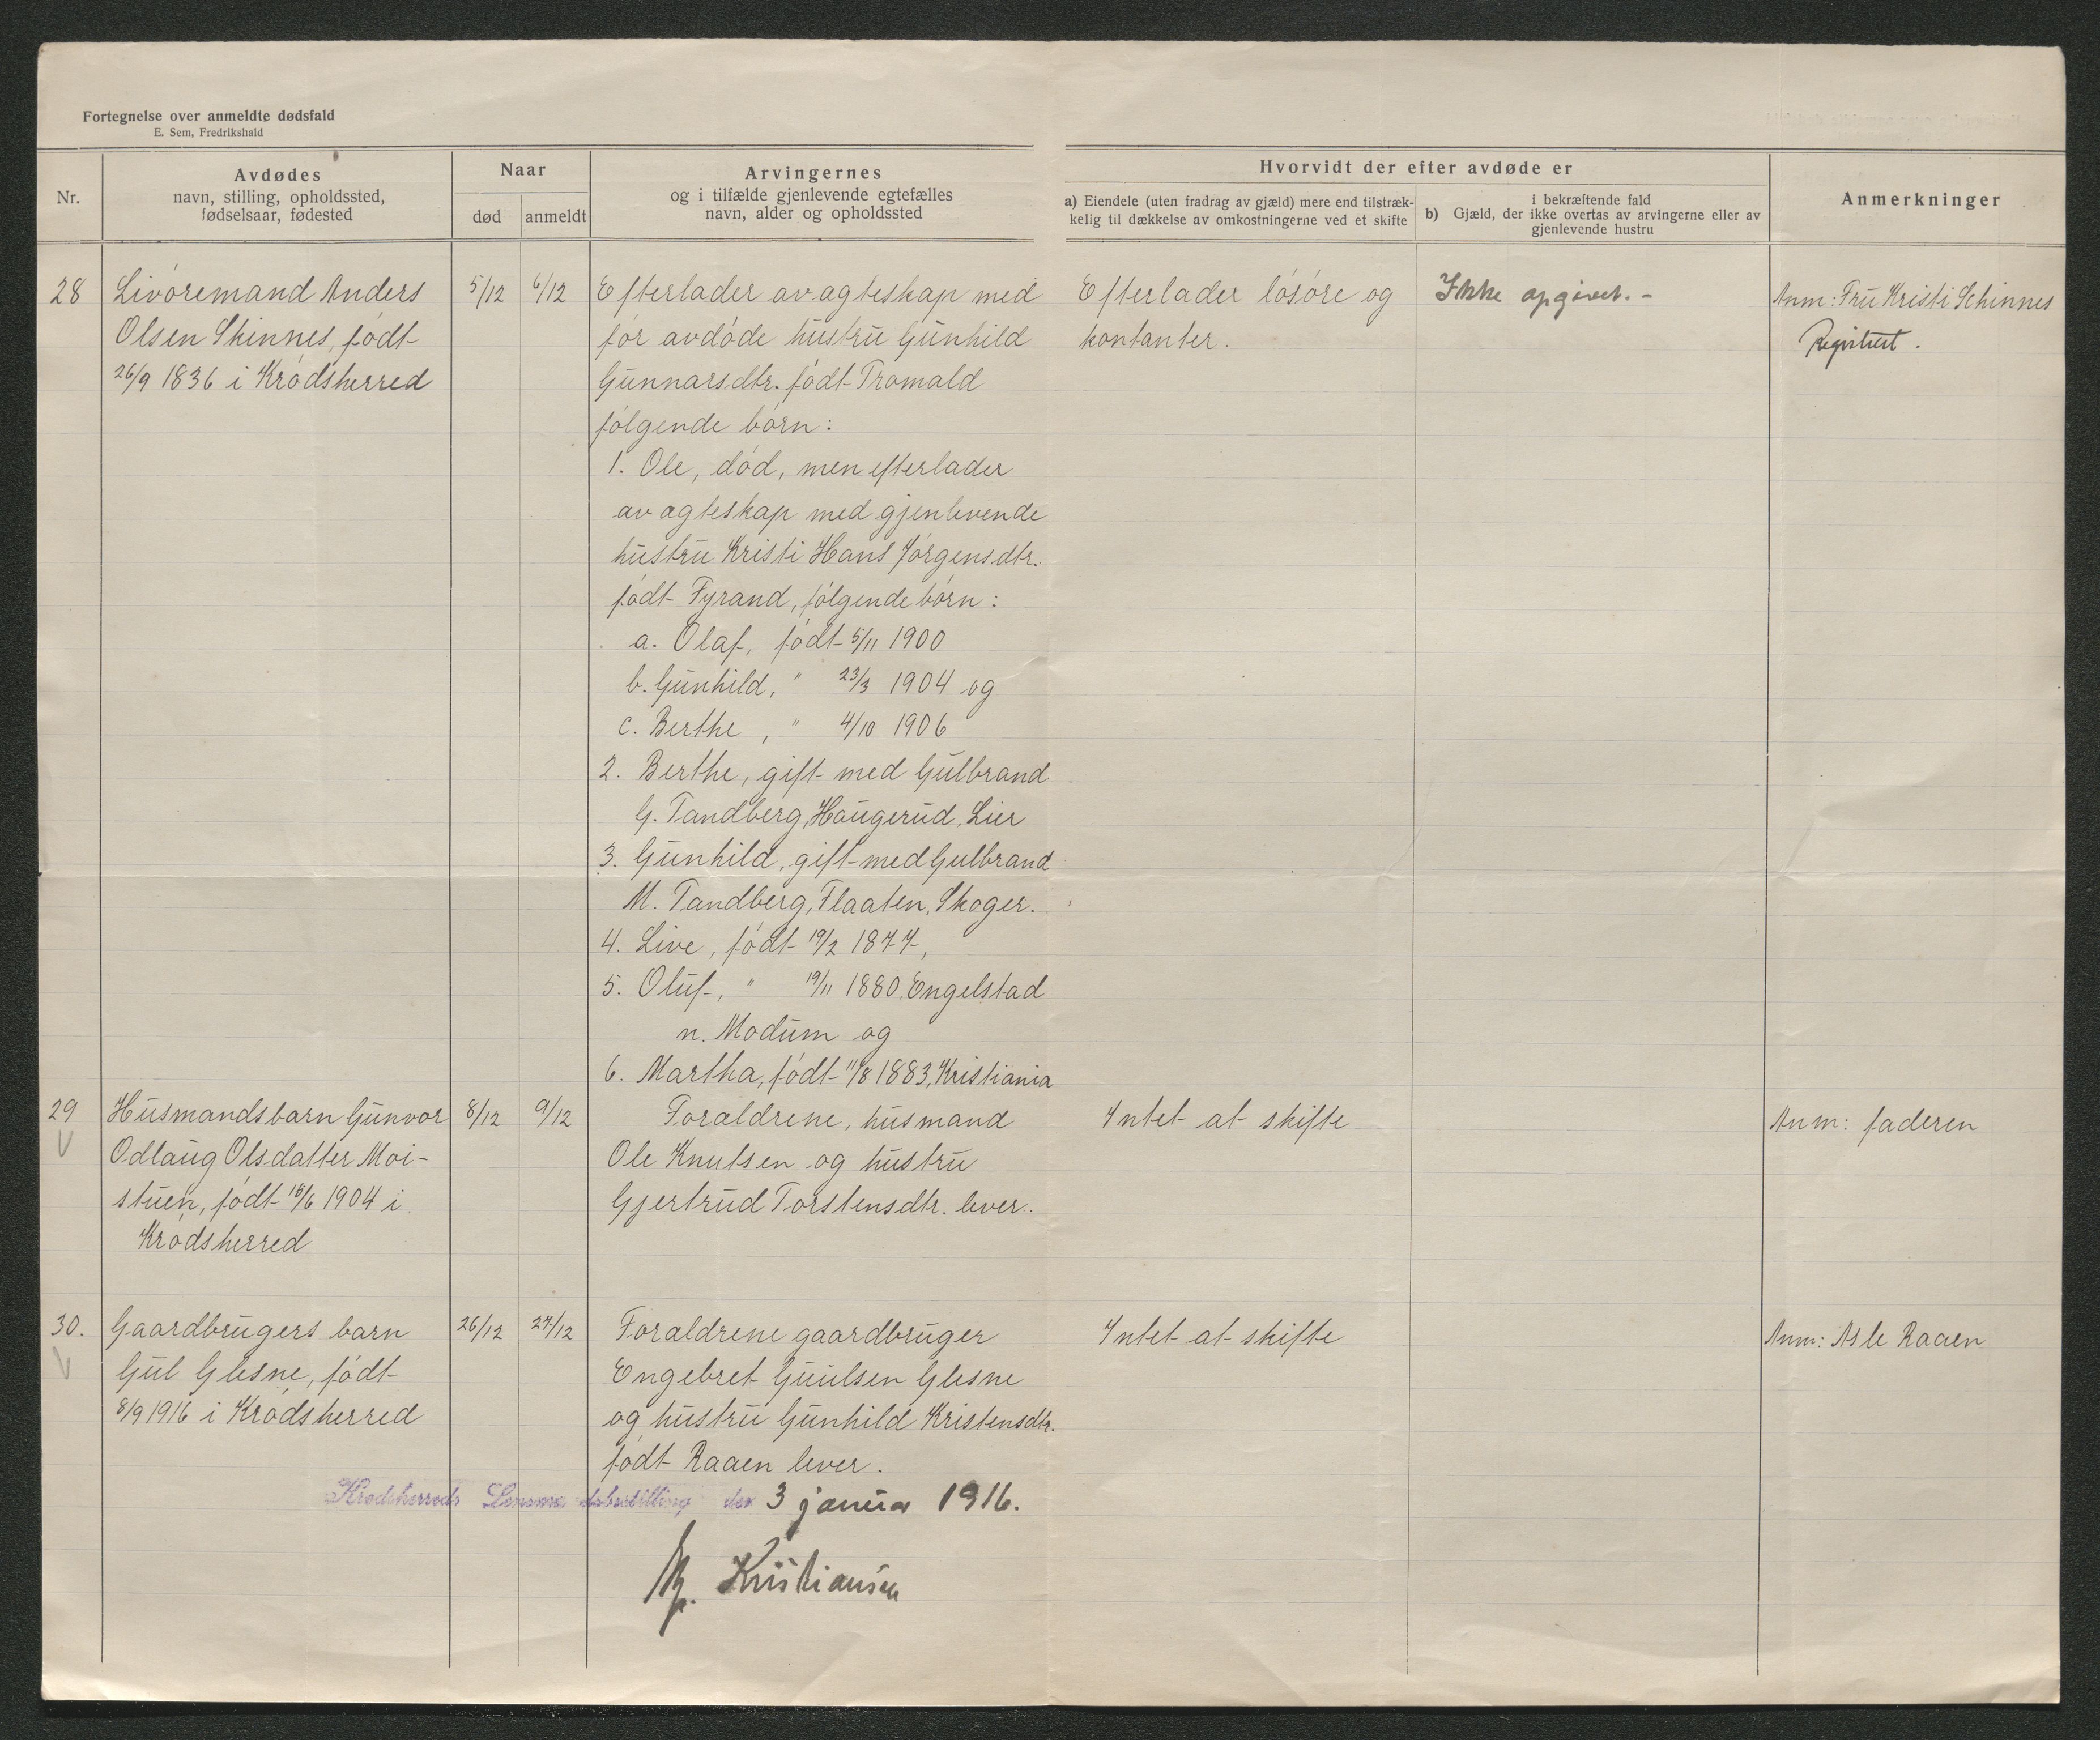 Fortegnelse over anmeldte dødsfald
E. Sem, Fredrikshald
Nr.
Avdødes
navn, stilling, opholdssted,
fødselsaar, fødested
Naar
død
anmeldt
Arvingernes
og i tilfælde gjenlevende egtefælles
navn, alder og opholdssted
Hvorvidt der efter avdøde er
a) Eiendele (uten fradrag av gjæld) mere end tilstræk-
kelig til dækkelse av omkostningerne ved et skifte
i bekræftende fald
b) Gjæld, der ikke overtas av arvingerne eller av
gjenlevende hustru
Anmerkninger
28
Livøremand Anders
Olsen Skinnes, født
26/9 1836 i Krødsherred
5/12
6/12
Efterlader av ægteskap med
før avdøde hustru Gunhild
Gunnarsdtr. født Tromald
følgende børn:
1. Ole, død, men efterlader
av ægteskap med gjenlevende
hustru Kristi Hans Jørgensdtr.
født Fyrand, følgende børn:
a. Olaf, født 5/11 1900
b. Gunhild, " 23/3 1904 og
c. Berthe, " 4/10 1906
2. Berthe, gift med Gulbrand
G. Tandberg, Haugerud, Lier
3. Gunhild, gift med Gulbrand
M. Tandberg, Flaaten, Skoger.
4. Live, født 19/2 1877,
5. Oluf, " 19/11 1880, Engelstad
n. Modum og
6. Martha, født 11/8 1883, Kristiania
Efterlader løsøre og
kontanter.
Ikke opgivet. -
Anm: Fru Kristi Schinnes
Registrert.
29
Husmandsbarn Gunvor
Odlaug Olsdatter Moi-
stuen, født 18/6 1904 i
Krødsherred
8/12
9/12
Forældrene, husmand
Ole Knutsen og hustru
Gjertrud Torstensdtr. lever.
Intet at skifte
Anm: faderen
30.
Gaardbrugers barn
Gul Glesne, født
8/9 1916 i Krødsherred
26/12
27/12
Forældrene gaardbruger
Engebret Guulsen Glesne
og hustru Gunhild Kristensdtr.
født Raaen lever.
Intet at skifte
Anm: Asle Raaen
Krødsherreds Lensmandsbestilling den 3 januar 1916.
Kristiansen